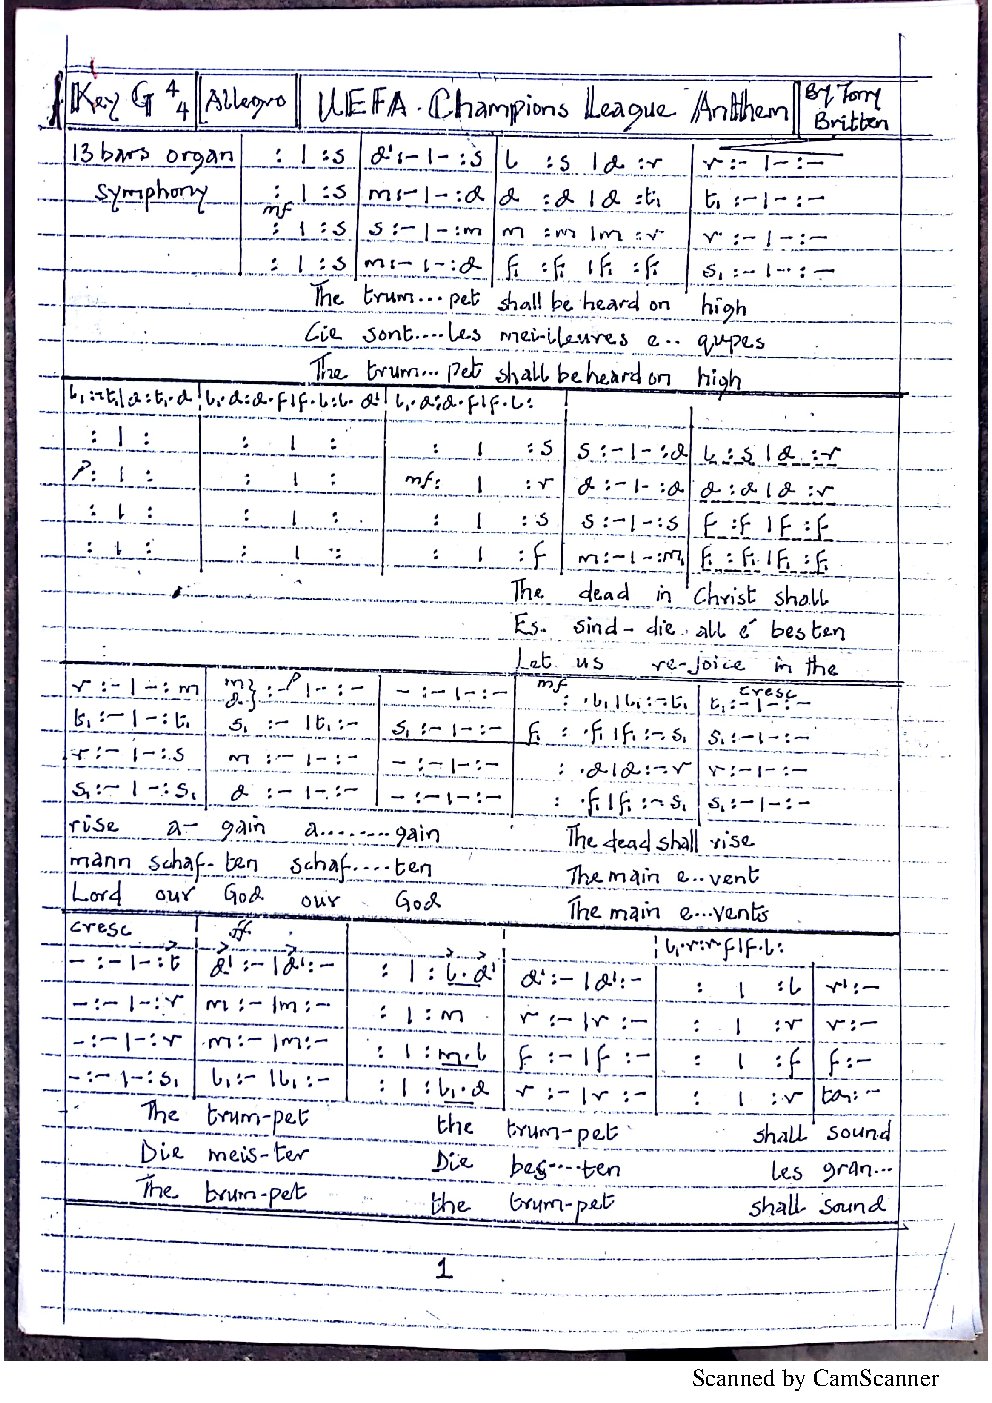 Key G 4/4 Allegro UEFA Champions League Anthem By Tony Britten
13 bars organ : | :s d':-|-:s l :s |d :r r :-|-:-
symphony : | :s m:-|-:d d :d |d :t₁ t₁ :-|-:-
mf
: | :s s:-|-:m m :m |m :r r :-|-:-
: | :s m:-|-:d f₁ :f₁ |f₁ :f₁ s₁ :-|-:-
The trum...pet shall be heard on high
Cie sont....les mei-lleures e.. qupes
The trum... pet shall be heard on high
l₁:-t₁|d:t₁.d l₁.d:d.f|f.l:l.d' l₁.d:d.f|f.l:
: | : : | : : | :s s:-|-:d l :s |d :r
p: | : : | : mf: | :r d:-|-:d d :d |d :r
: | : : | : : | :s s:-|-:s f :f |f :f
: | : : | : : | :f m:-|-:m₁ f₁ :f₁ |f₁ :f₁
The dead in Christ shall
Es. sind-die all e' besten
Let us re-joice in the
mf cresc
r:-|-:m m d}:-p|-:- -:-|-:- : .l₁|l₁:-t₁ t₁:-|-:-
t₁:-|-:t₁ s₁ :-|t₁:- s₁:-|-:- f₁ : .f₁|f₁:-s₁ s₁:-|-:-
r:-|-:s m :-|-:- -:-|-:- : .d|d:-r r:-|-:-
s₁:-|-:s₁ d :-|-:- -:-|-:- : .f₁|f₁:-s₁ s₁:-|-:-
rise a- gain a.........gain The dead shall rise
mann schaf-ten schaf....ten The main e..vent
Lord our God our God The main e...vents
cresc ff l₁.r:r.f|f.l:
-:-|-:t d':-|d':- : | :l.d' d':-|d':- : | :l r':-
-:-|-:r m:-|m:- : | :m r :-|r :- : | :r r:-
-:-|-:r m:-|m:- : | :m.l f :-|f :- : | :f f:-
-:-|-:s₁ l₁:-|l₁:- : | :l₁.d r :-|r :- : | :r ta₁:-
The trum-pet the trum-pet shall sound
Die meis-ter Die bes....ten les gran...
The trum-pet the trum-pet shall sound
1
Scanned by CamScanner